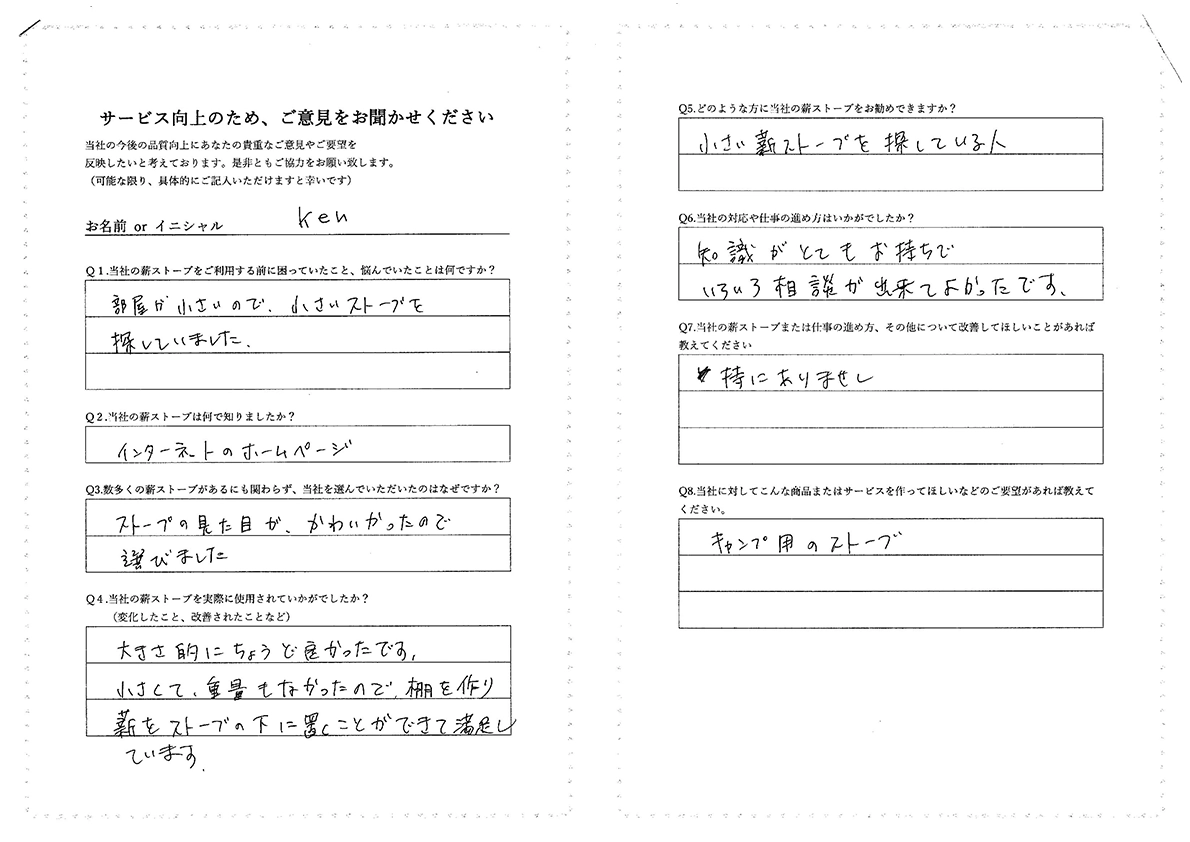 サービス向上のため、ご意見をお聞かせください
当社の今後の品質向上にあなたの貴重なご意見やご要望を
反映したいと考えております。是非ともご協力をお願い致します。
（可能な限り、具体的にご記入いただけますと幸いです）
お名前 or イニシャル Ken
Q１.当社の薪ストーブをご利用する前に困っていたこと、悩んでいたことは何ですか？
部屋が小さいので、小さいストーブを
探していました、
Q２.当社の薪ストーブは何で知りましたか？
インターネットのホームページ
Q3.数多くの薪ストーブがあるにも関わらず、当社を選んでいただいたのはなぜですか？
ストーブの見た目が、かわいかったので
選びました
Q４.当社の薪ストーブを実際に使用されていかがでしたか？
（変化したこと、改善されたことなど）
大きさ的にちょうど良かったです,
小さくて、重量もなかったので、棚を作り
薪をストーブの下に置くことができて満足し
ています.
Q5.どのような方に当社の薪ストーブをお勧めできますか？
小さい薪ストーブを探している人
Q6.当社の対応や仕事の進め方はいかがでしたか？
知識がとてもお持ちで
いろいろ相談が出来てよかったです、
Q7.当社の薪ストーブまたは仕事の進め方、その他について改善してほしいことがあれば
教えてください
特にありません
Q8.当社に対してこんな商品またはサービスを作ってほしいなどのご要望があれば教えて
ください。
キャンプ用のストーブ